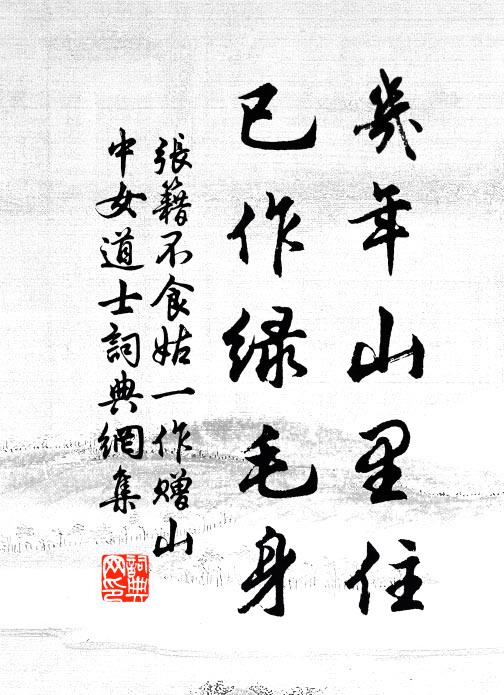 幾年山里住
已作绿毛身
張籍不食姑一作贈山
中女道士詞典網集
詞典
网印